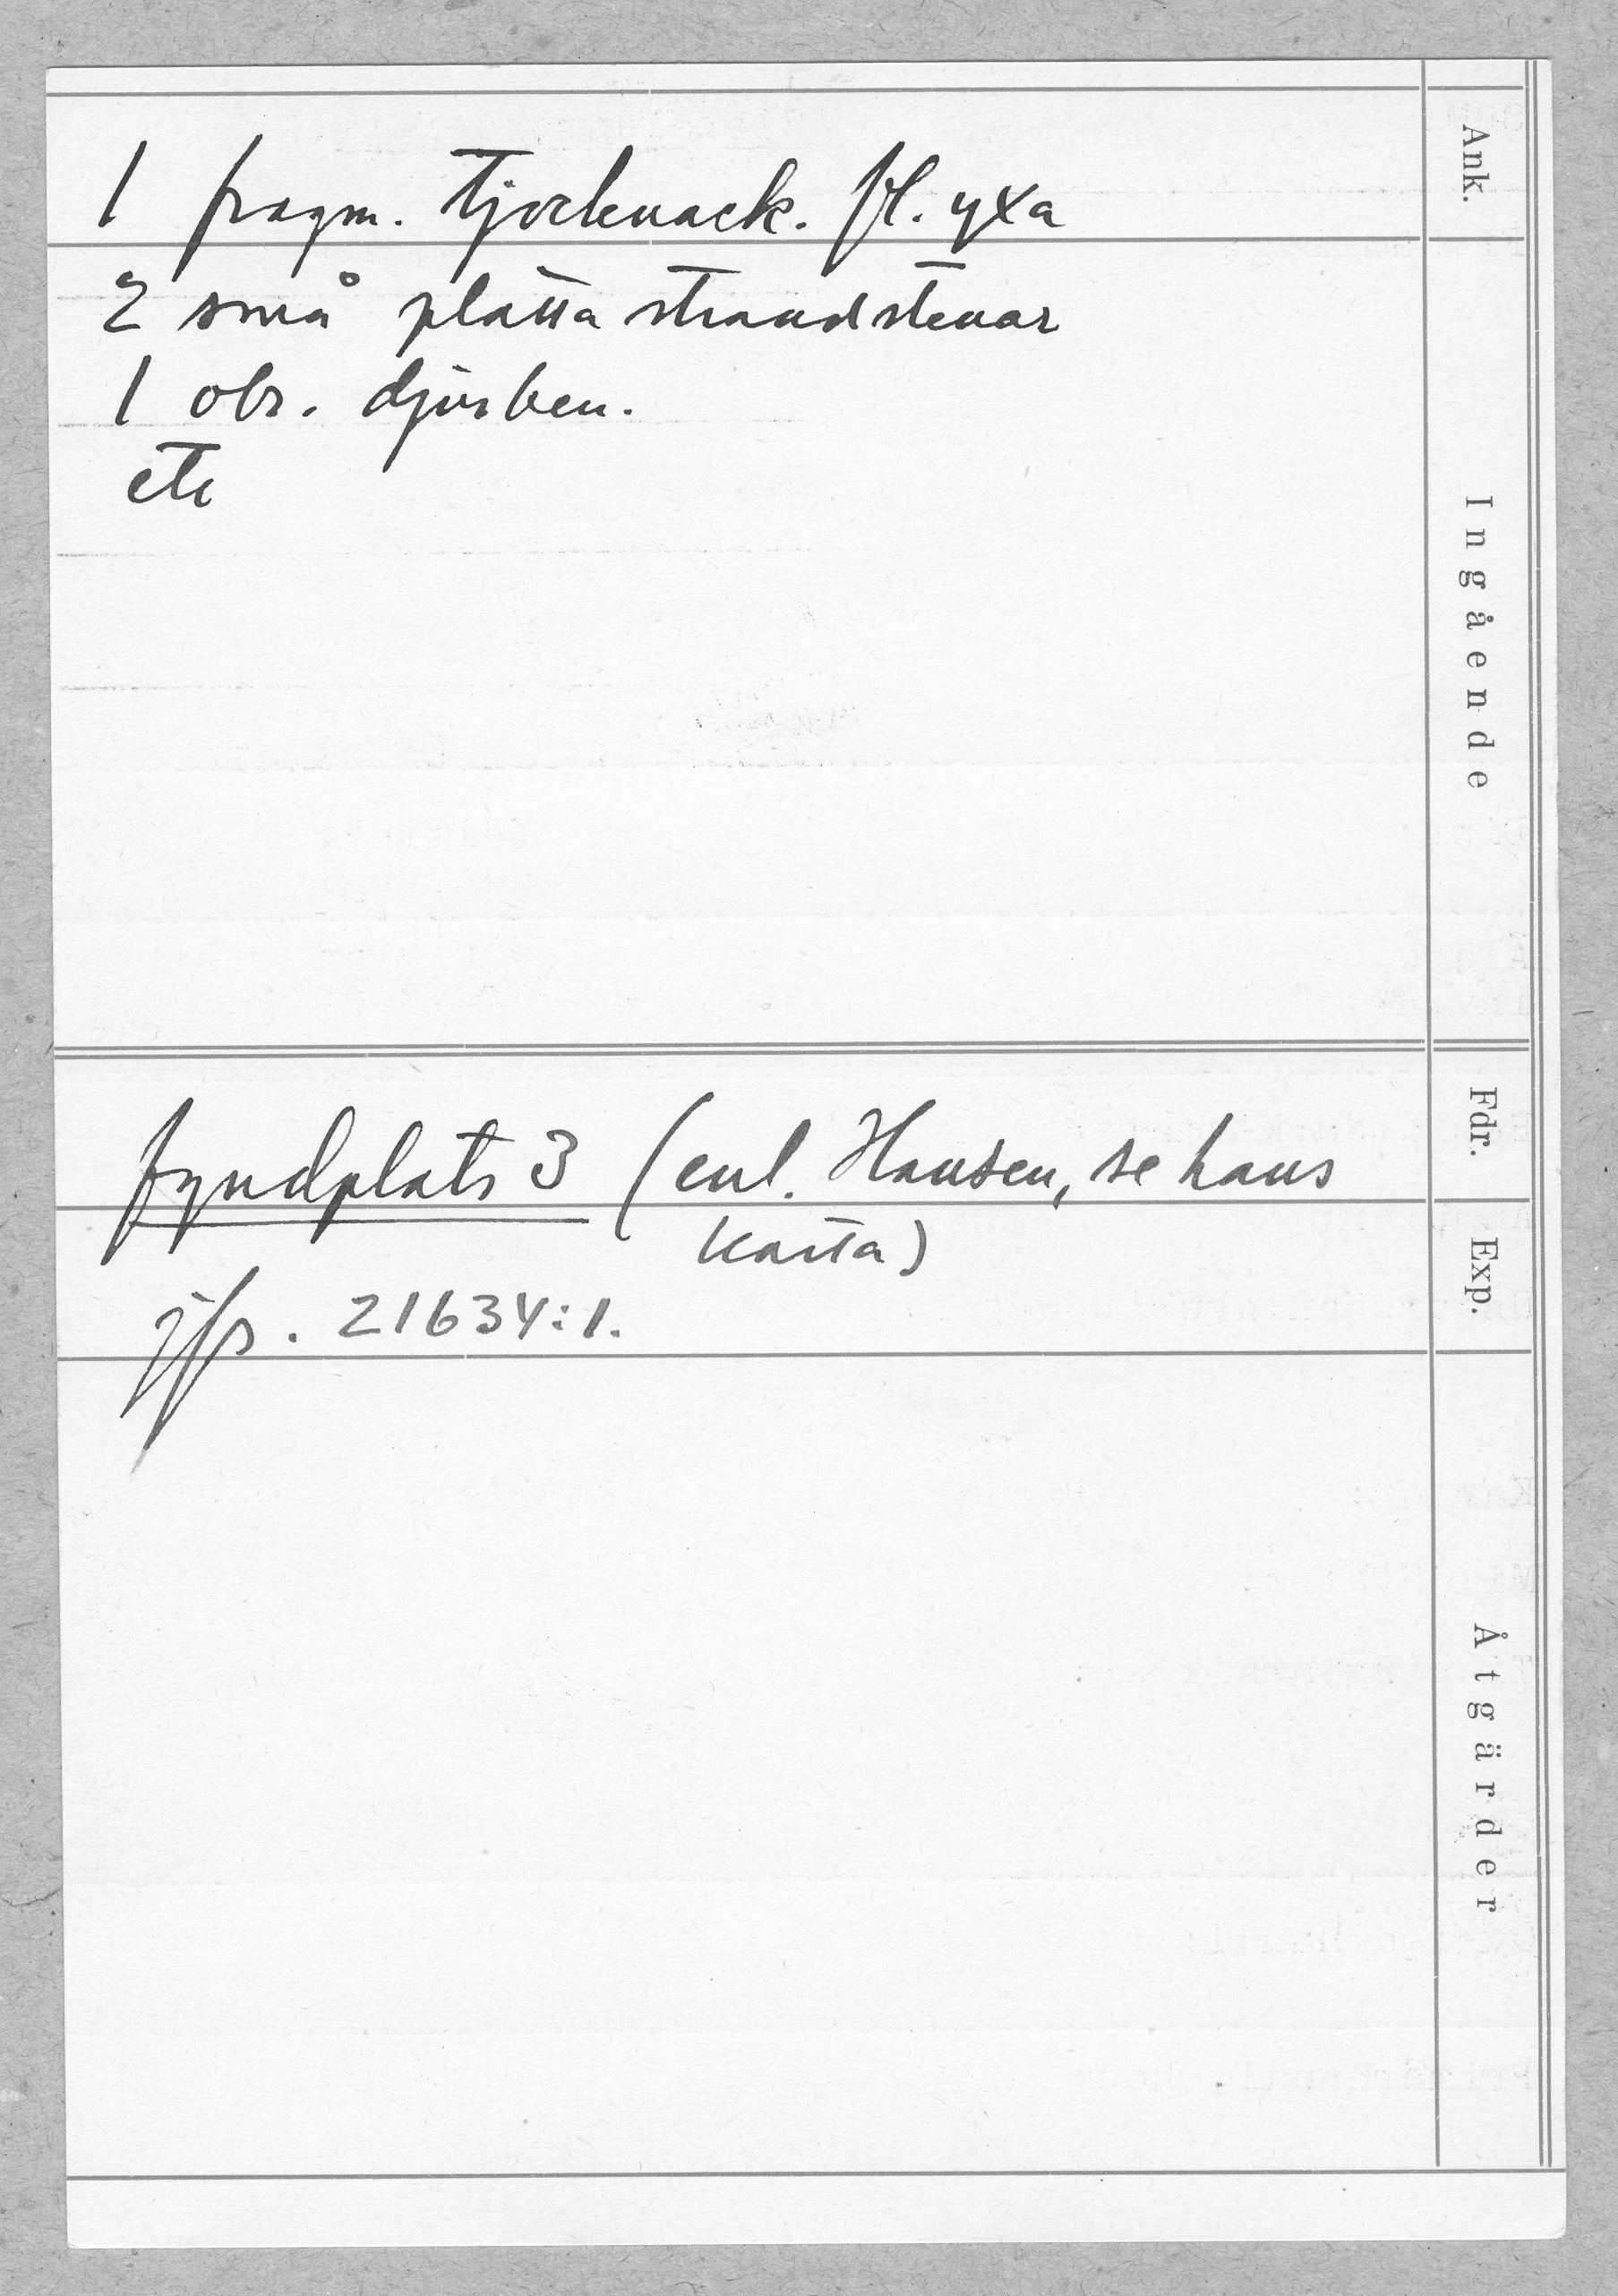 1 fragm. tjocknack. fl. yxa
2 små platta strandstenar
1 obr. djurben.
etc
fyndplats 3 (enl. Hansen, se hans
karta)
jfr. 21634:1.
Ank.
Ingående
Fdr.
Exp.
Åtgärder